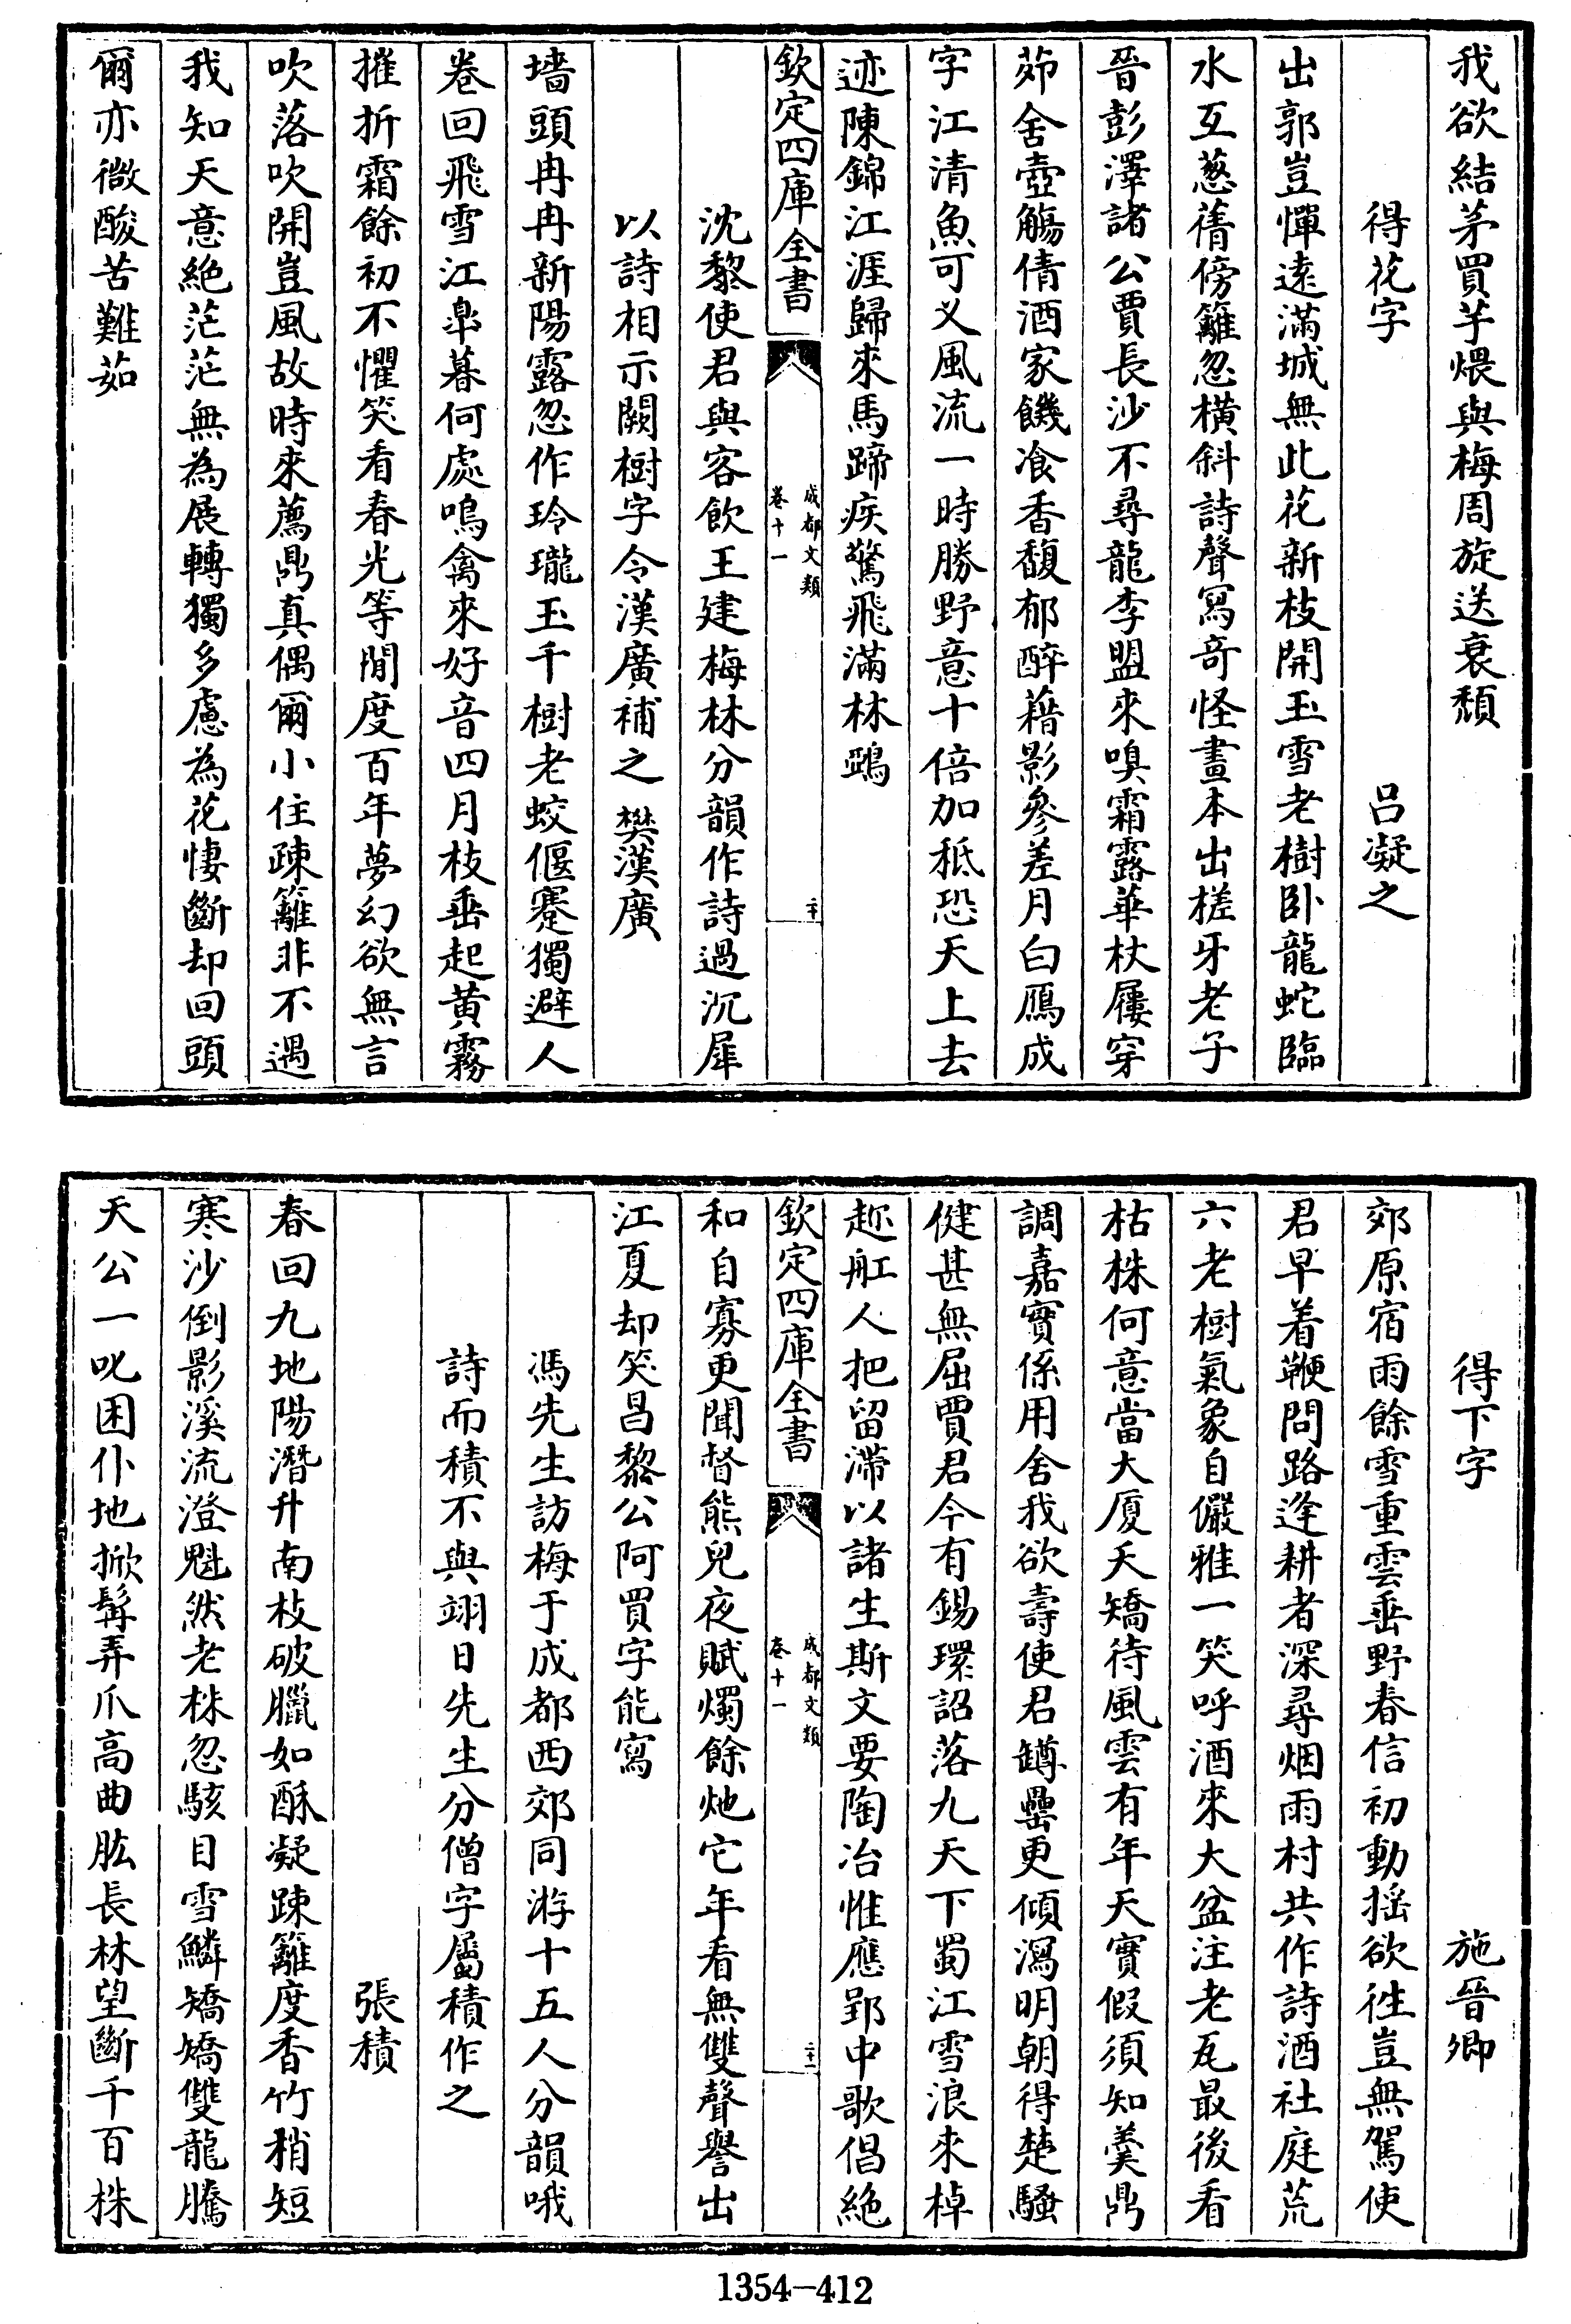 我欲結茅買芋煨與梅周旋送衰頽
得花字　吕凝之
出郭豈憚逺滿城無此花新枝開玉雪老樹卧龍蛇臨
水互葱蒨傍籬忽横斜詩聲寫奇怪畫本出槎牙老子
晉彭澤諸公賈長沙不尋龍李盟來嗅霜露華杖屨穿
茆舍壺觴倩酒家饑飡香馥郁醉藉影參差月白鴈成
字江清魚可义風流一時勝野意十倍加秪恐天上去
迹陳錦江涯歸來馬蹄疾驚飛滿林鵶
欽定四庫全書
成都文類
卷十一
二十
沈黎使君與客飲王建梅林分韻作詩過沉犀
以詩相示闕樹字令漢廣補之　樊漢廣
墻頭冉冉新陽露忽作玲瓏玉千樹老蛟偃蹇獨避人
卷回飛雪江臯暮何處鳴禽來好音四月枝垂起黄霧
摧折霜餘初不懼笑看春光等閒度百年夢幻欲無言
吹落吹開豈風故時來薦鼎真偶爾小住疎籬非不遇
我知天意絶茫茫無為展轉獨多慮為花悽斷却回頭
爾亦微酸苦難茹
得下字　施晉卿
郊原宿雨餘雪重雲垂野春信初動揺欲徃豈無駕使
君早着鞭問路逢耕者深尋烟雨村共作詩酒社庭荒
六老樹氣象自儼雅一笑呼酒來大盆注老瓦最後看
枯株何意當大厦夭矯待風雲有年天實假須知羹鼎
調嘉實係用舍我欲壽使君罇罍更傾瀉明朝得楚騷
健甚無屈賈君今有錫環詔落九天下蜀江雪浪來棹
趂舡人把留滯以諸生斯文要陶冶惟應郢中歌倡絶
欽定四庫全書
成都文類
卷十一
二十一
和自寡更聞督熊兒夜賦燭餘灺它年看無雙聲譽出
江夏却笑昌黎公阿買字能寫
馮先生訪梅于成都西郊同游十五人分韻哦
詩而積不與翊日先生分僧字屬積作之
張積
春回九地陽潛升南枝破臘如酥凝踈籬度香竹稍短
寒沙倒影溪流澄魁然老株忽駭目雪鱗矯矯雙龍騰
天公一叱困仆地掀髯弄爪高曲肱長林望斷千百株
1354-412